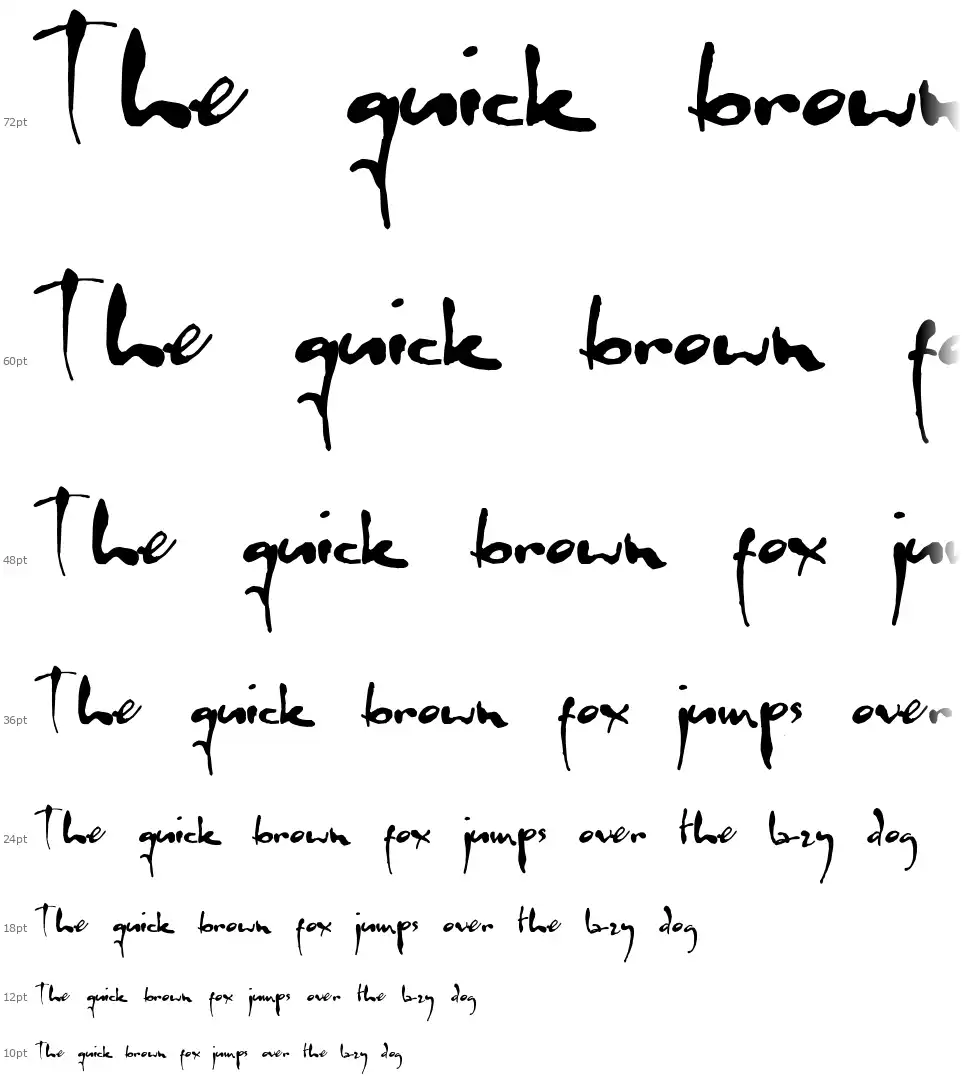 72pt The quick brown
60pt The quick brown fo
48pt The quick brown fox jum
36pt The quick brown fox jumps over
24pt The quick brown fox jumps over the lazy dog
18pt The quick brown fox jumps over the lazy dog
12pt The quick brown fox jumps over the lazy dog
10pt The quick brown fox jumps over the lazy dog